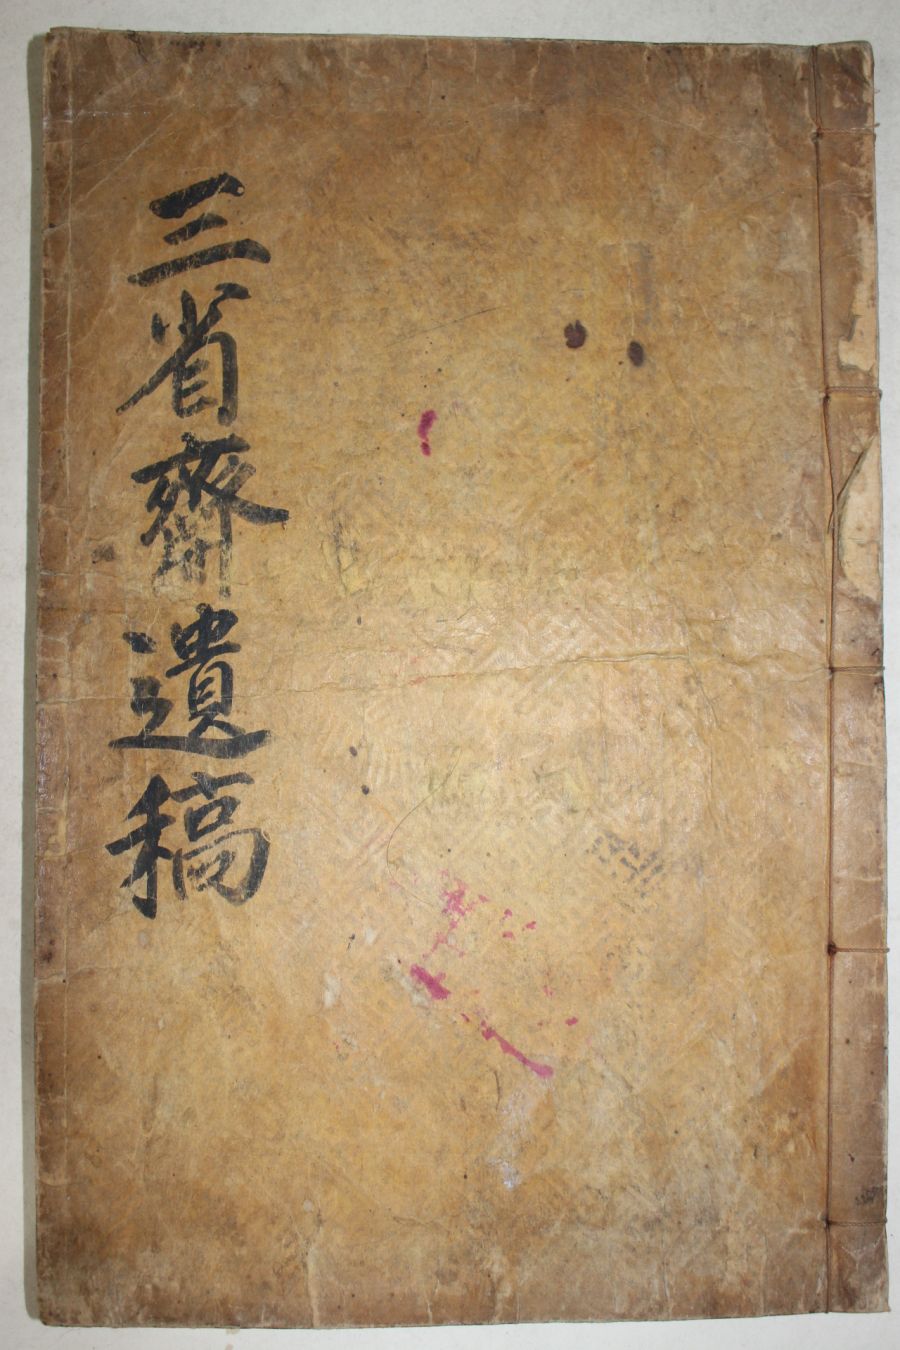 三省齋遺稿